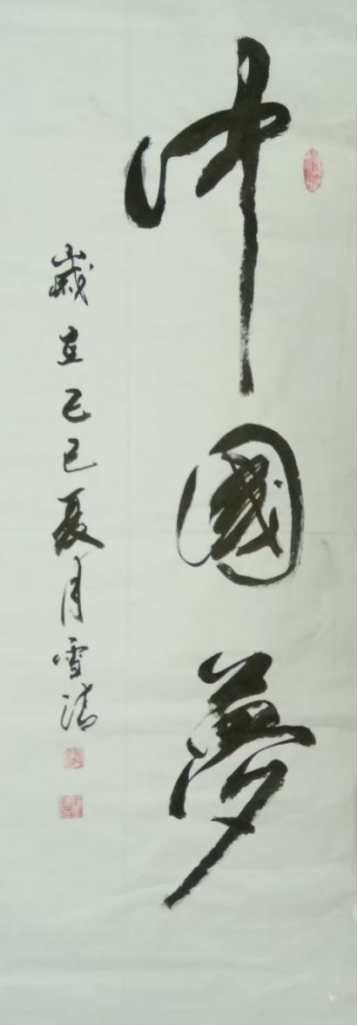 中國夢
歲在己巳夏月雪清